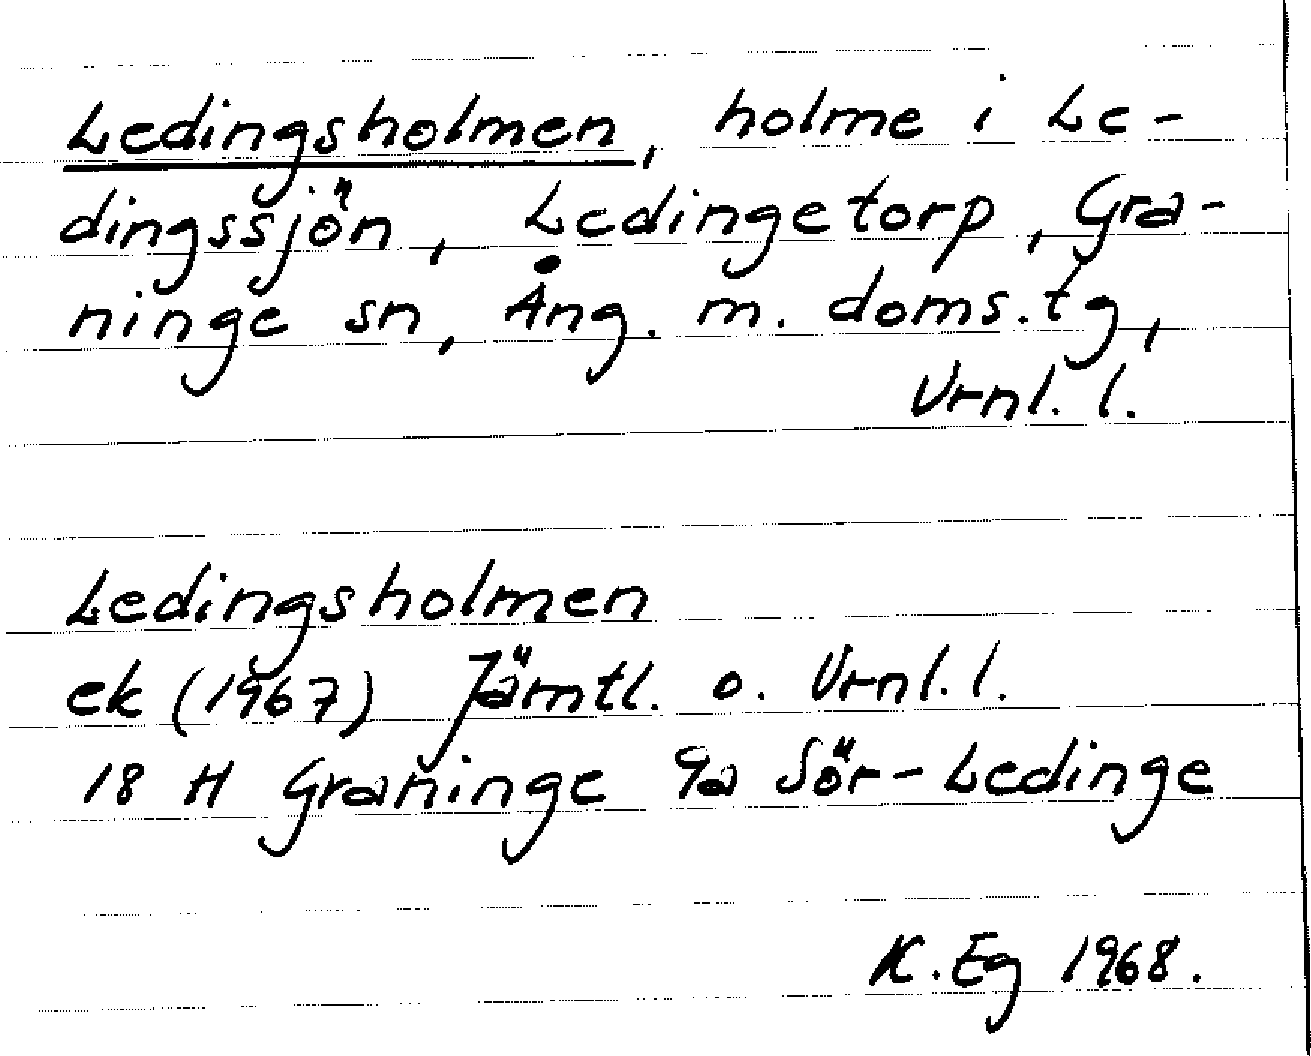 Ledingsholmen, holme i Le-
dingssjön, Ledingetorp, Gra-
ninge sn, Ång. m. doms.tg,
Vrnl. l.
Ledingsholmen
ek (1967) Jämtl. o. Vrnl. l.
18 H Graninge 9a Sör-Ledinge
K. Eg 1968.